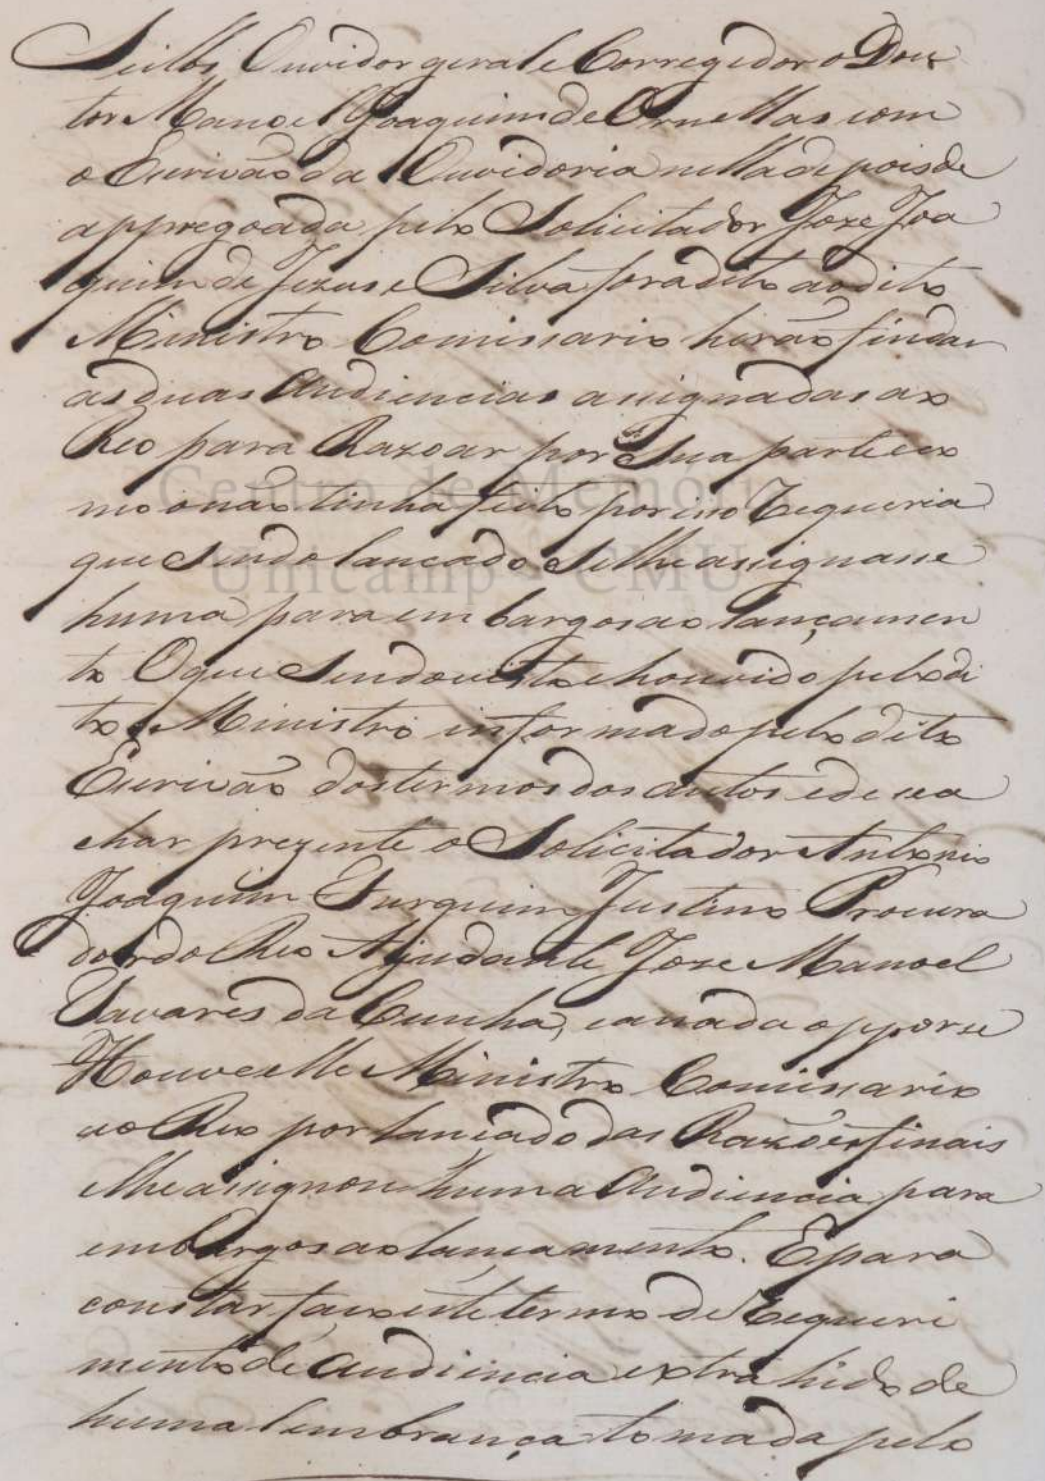 Feitos Ouvidor geral e Corregedor o Dou
tor Manoel Joaquim de Ornellas com
o Escrivaõ da Ouvidoria nella depois de
appregoada pelo Solicitador Joze Joa
quim de Jezus e Silva fora dito ao dito
Ministro Comissario heraõ findas
as duas Audiencias assignadas ao
Reo para Razoar por Sua parte e co
mo o naõ tinha feito por isso Requeria
que Sendo lancado Selhe assignasse
huma para embargos ao lançamen
to O que Sendo visto e houvido pelo di
to Ministro informado pelo dito
Escrivaõ dos termos dos autos e de se a
char prezente o Solicitador Antonio
Joaquim Eurquim Justino Procura
dor do Reo Ajudante Joze Manoel
Tavares da Cunha, e a nada opporse
Houve elle Ministro Comissario
ao Reo por lancado das Razoẽs finais
e lhe assignou huma Audiencia para
embargos ao lancamento. E para
constar faço este termo de Requeri
mento de Audiencia extrahido de
huma lembrança tomada pelo
Centro de Memoria
Unicamp - CMU